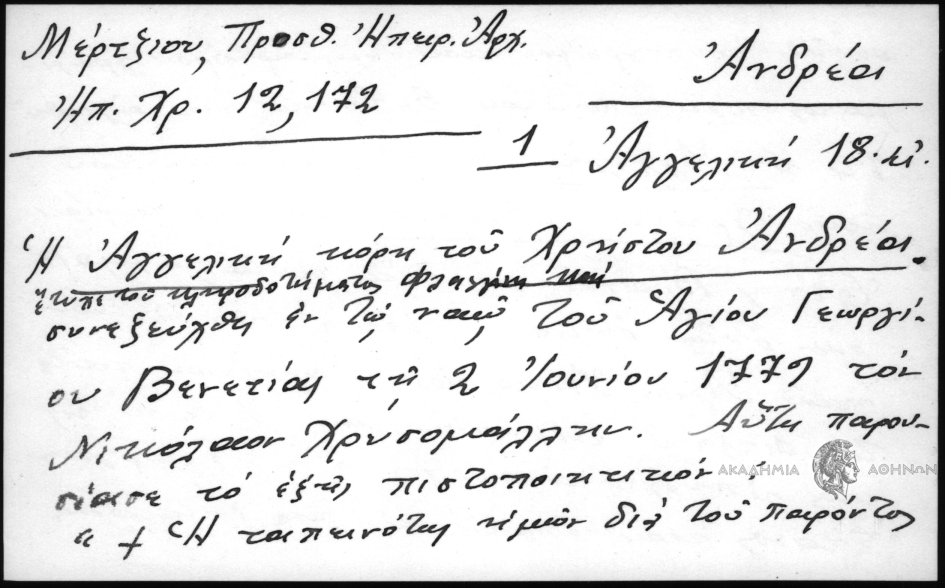 Μέρτζιου, Προσθ. Ἠπειρ. Ἀρχ.
Ἠπ. Χρ. 12, 172
Ἀνδρέα
1 Ἀγγελική 18. αἰ.
Ἡ Ἀγγελική κόρη τοῦ Χρήστου Ἀνδρέα.
ἔτυχε τοῦ κληροδοτήματος Φλαγγίνη καί
συνεζεύχθη ἐν τῷ ναῷ τοῦ Ἁγίου Γεωργί-
ου Βενετίας τῇ 2 Ἰουνίου 1779 τόν
Νικόλαον Χρυσομάλλην. Αὕτη παρου-
σίασε τό ἑξῆς πιστοποιητικόν :
" + Ἡ ταπεινότης ἡμῶν διά τοῦ παρόντος
ΑΚΑΔΗΜΙΑ ΑΘΗΝΩΝ